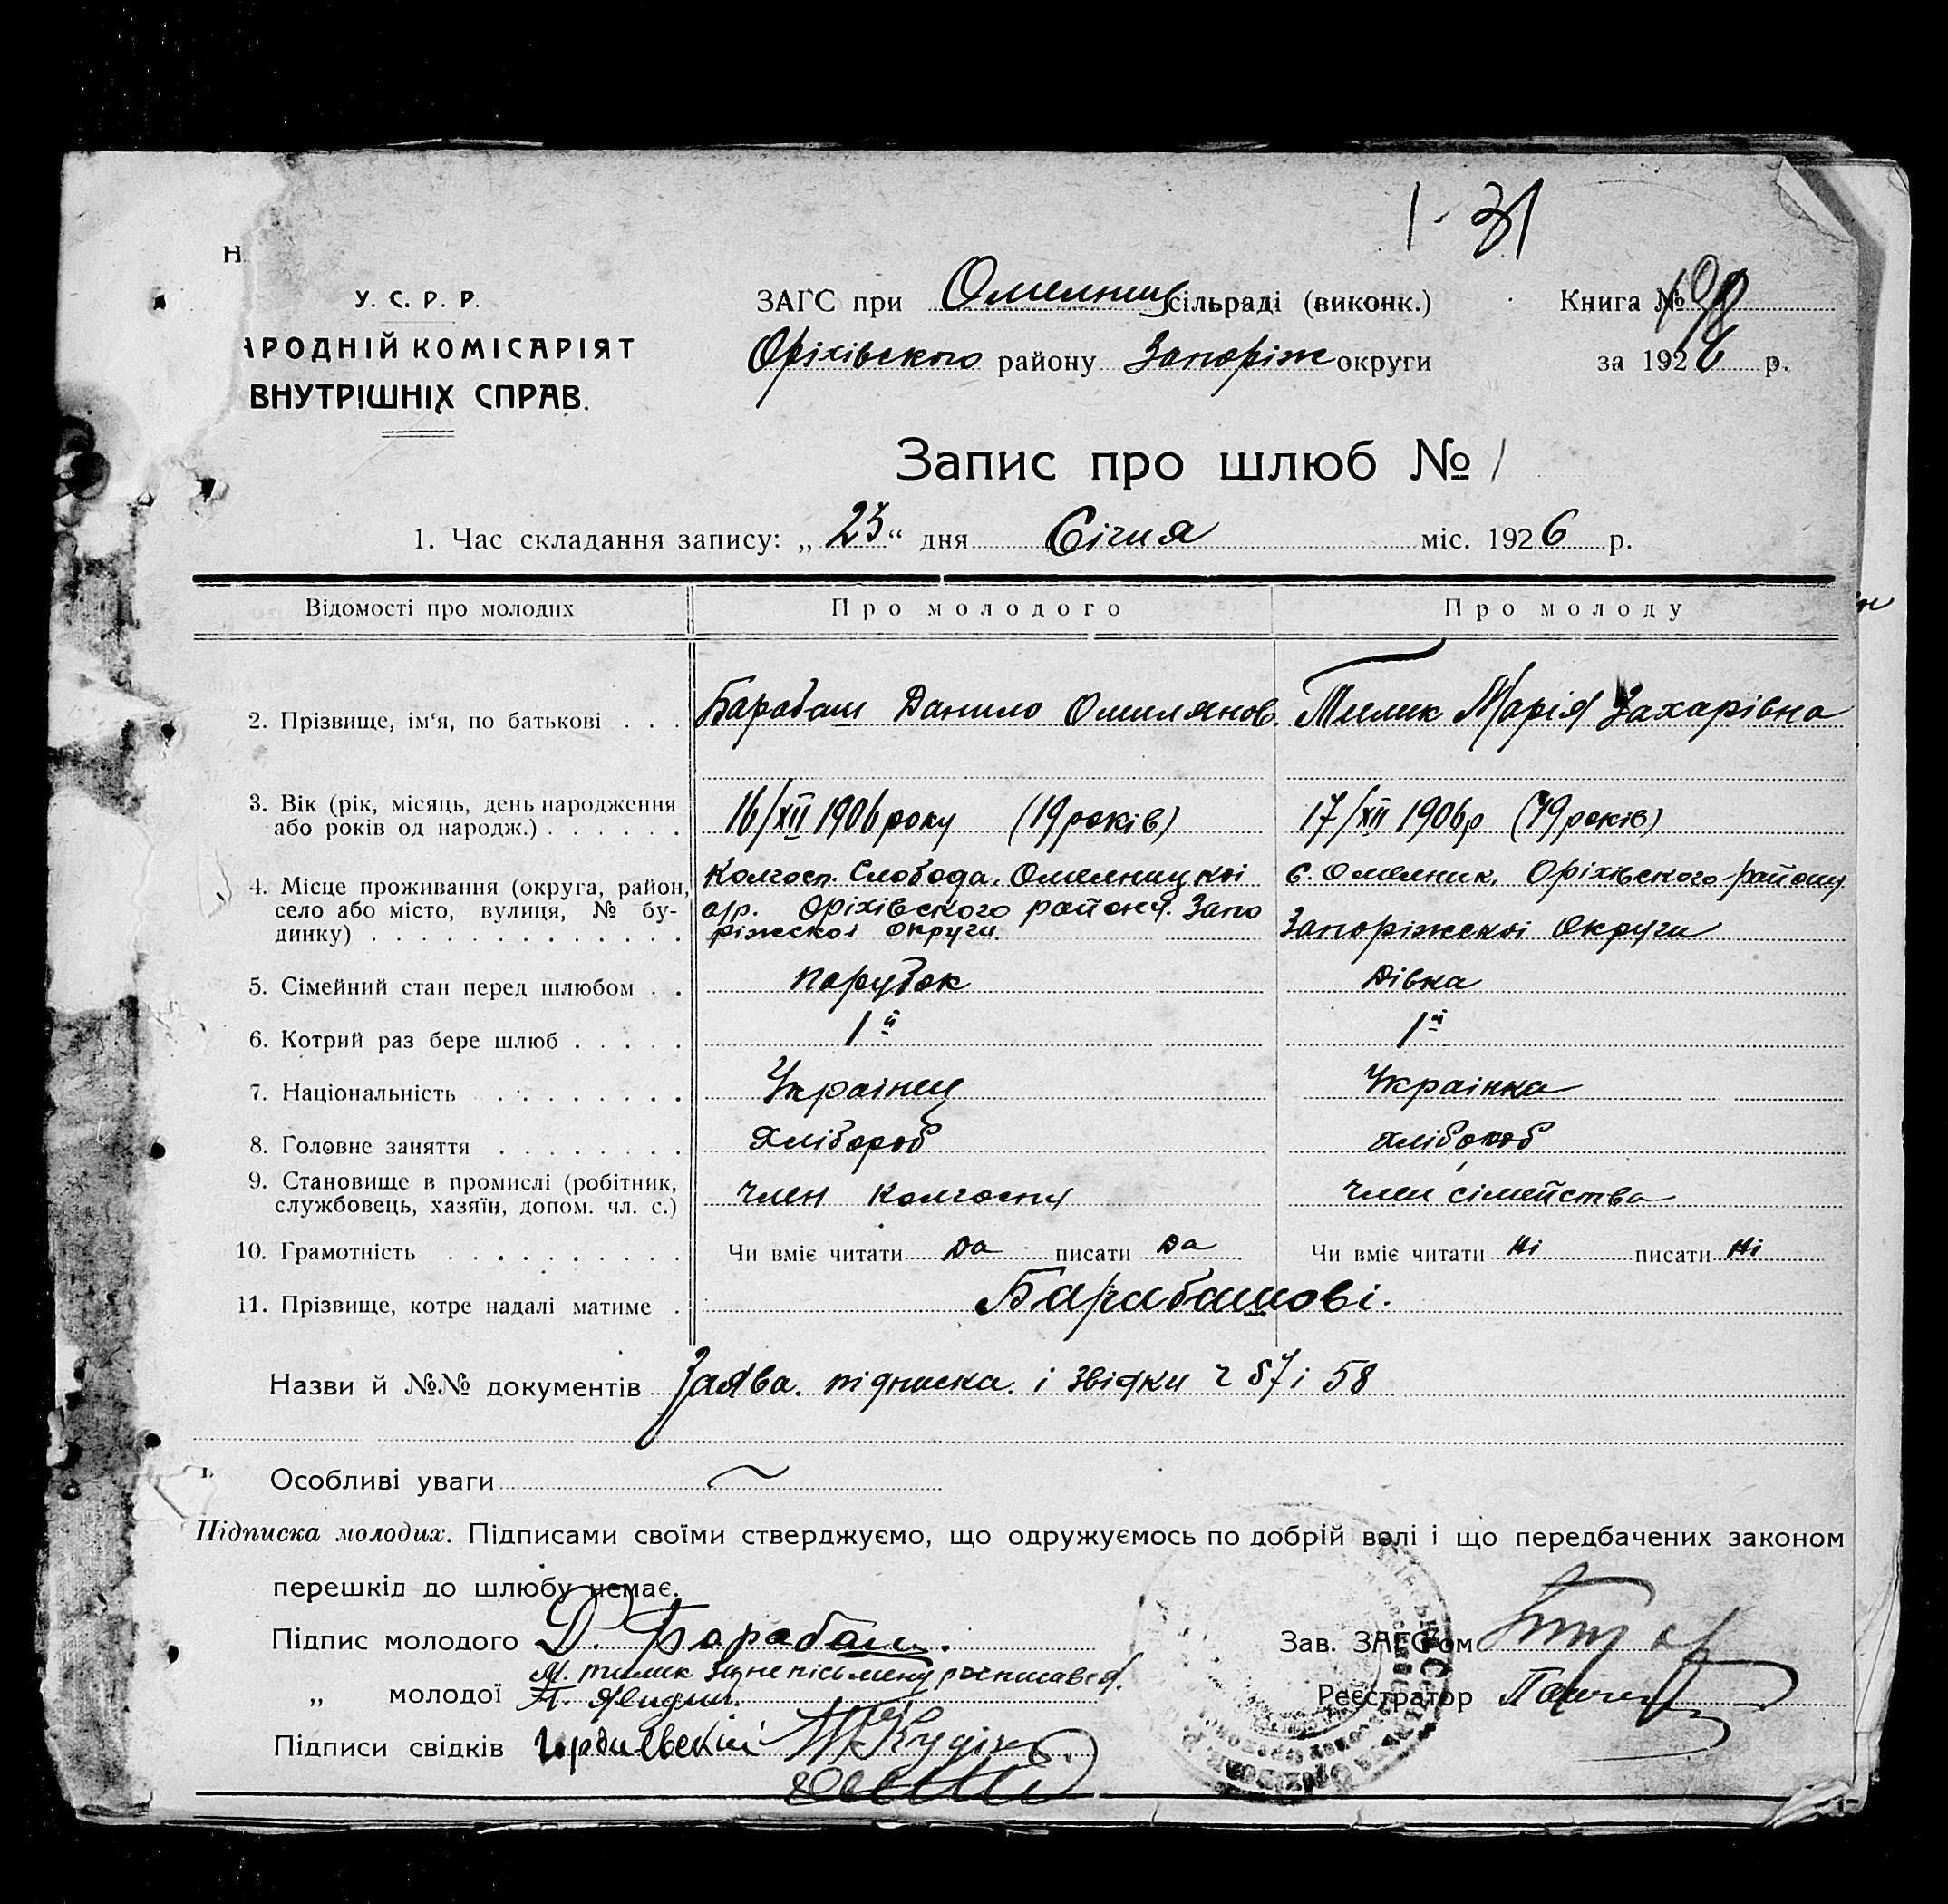 1-31
У. С. Р. Р.
НАРОДНІЙ КОМІСАРІЯТ
ВНУТРІШНІХ СПРАВ.
ЗАГС при Омелниц сільраді (виконк.)
Оріхівского району Запоріж округи
Книга №
за 1926 р.
Запис про шлюб № 1
1. Час складання запису: „23“ дня Січня міс. 1926 р.
Відомості про молодих Про молодого Про молоду
2. Прізвище, ім‘я, по батькові . . . Барабаш Данило Омилянов. Тилик Марія Захарівна
3. Вік (рік, місяць, день народження
або років од народж.) . . . . . . 16/XII 1906 року (19 років) 17/XII 1906 р (19 років)
4. Місце проживання (округа, район,
село або місто, вулиця, № бу-
динку) . . . . . . . . . . . . .
Колгосп. Слобода. Омелницкоі
с/р. Оріхівского району. Запо
ріжскоі округи.
с. Омелник, Оріхівского району
Запоріжскоі Округи
5. Сімейний стан перед шлюбом . . парубок дівка
6. Котрий раз бере шлюб . . . . . 1й 1й
7. Національність . . . . . . . . Українец Українка
8. Головне заняття . . . . . . . . Хлібороб хлібороб
9. Становище в промислі (робітник,
службовець, хазяїн, допом. чл. с.) член колгоспу член сімейства
10. Грамотність . . . . . . . . . Чи вміє читати Да писати Да Чи вміє читати Ні писати Ні
11. Прізвище, котре надалі матиме . Барабашові.
Назви й №№ документів Заява. підписка. і звідки ч 57 і 58
Особливі уваги
Підписка молодих. Підписами своїми стверджуємо, що одружуємось по добрій волі і що передбачених законом
перешкід до шлюбу немає.
Підпис молодого Д. Барабаш.
Зав. ЗАГС‘ом
„ молодої М. тилик за непісьмену росписався
Реєстратор
Підписи свідків